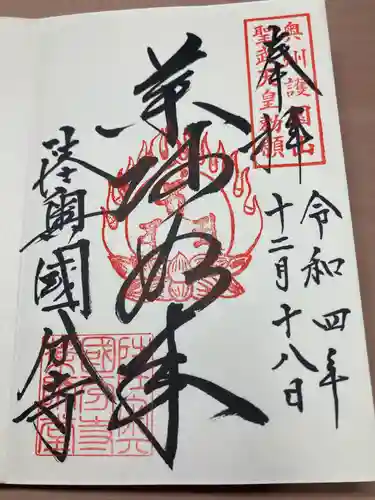 奉拝
奥州護国山
聖武天皇勅願
令和四年
十二月十八日
薬師如来
陸奥國分寺